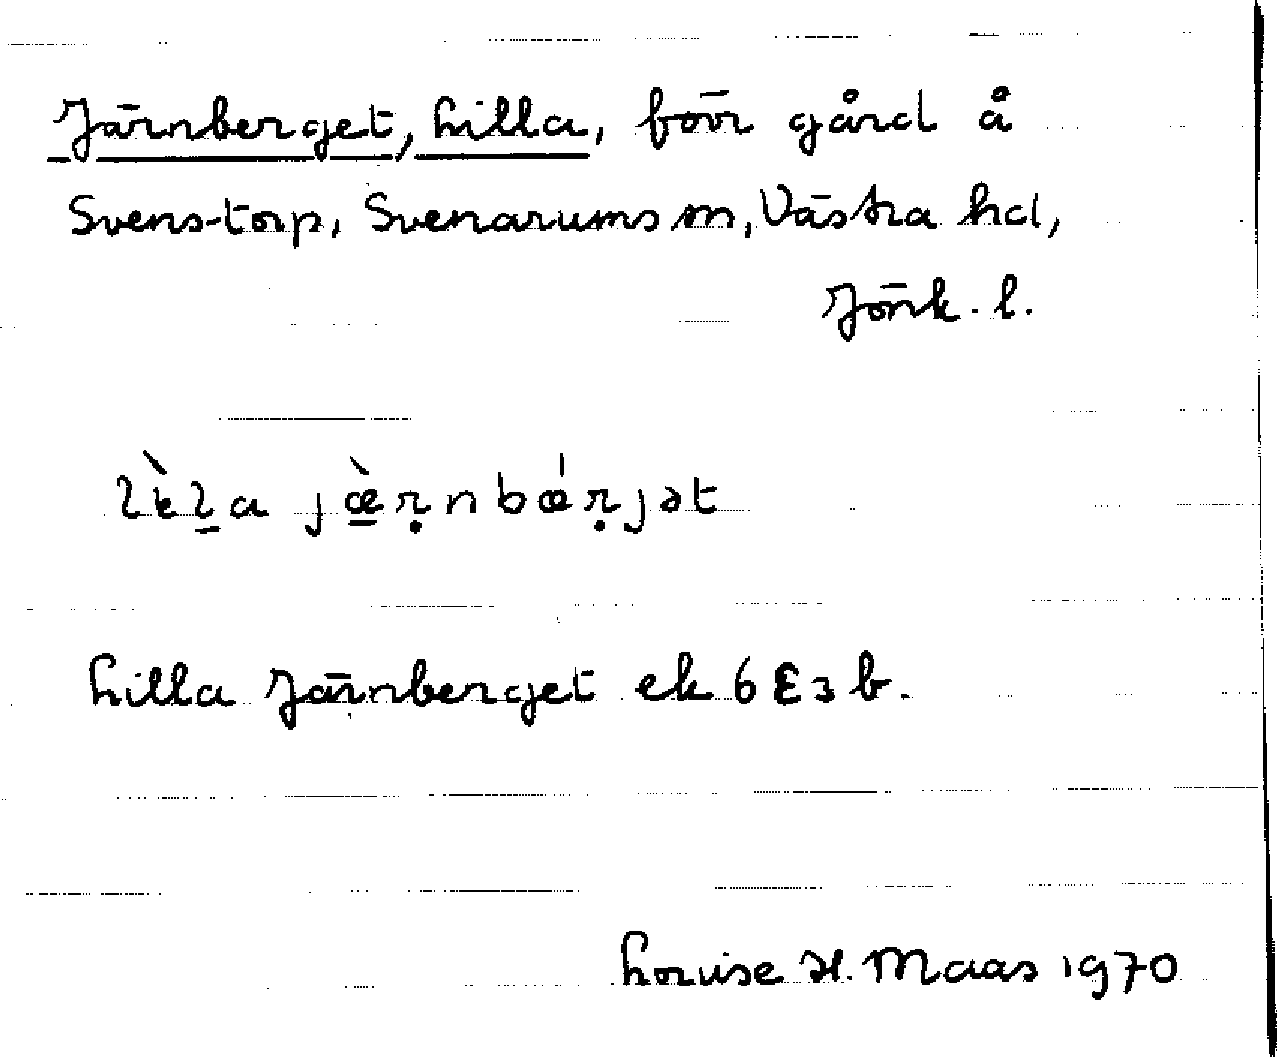 Järnberget, Lilla, förr gård å
Svenstorp, Svenarums sn, Västra hd,
Jönk. l.
lὲla jæ̀rnbærjət
Lilla Järnberget ek 6 E 3 b.
Louise H. Maas 1970